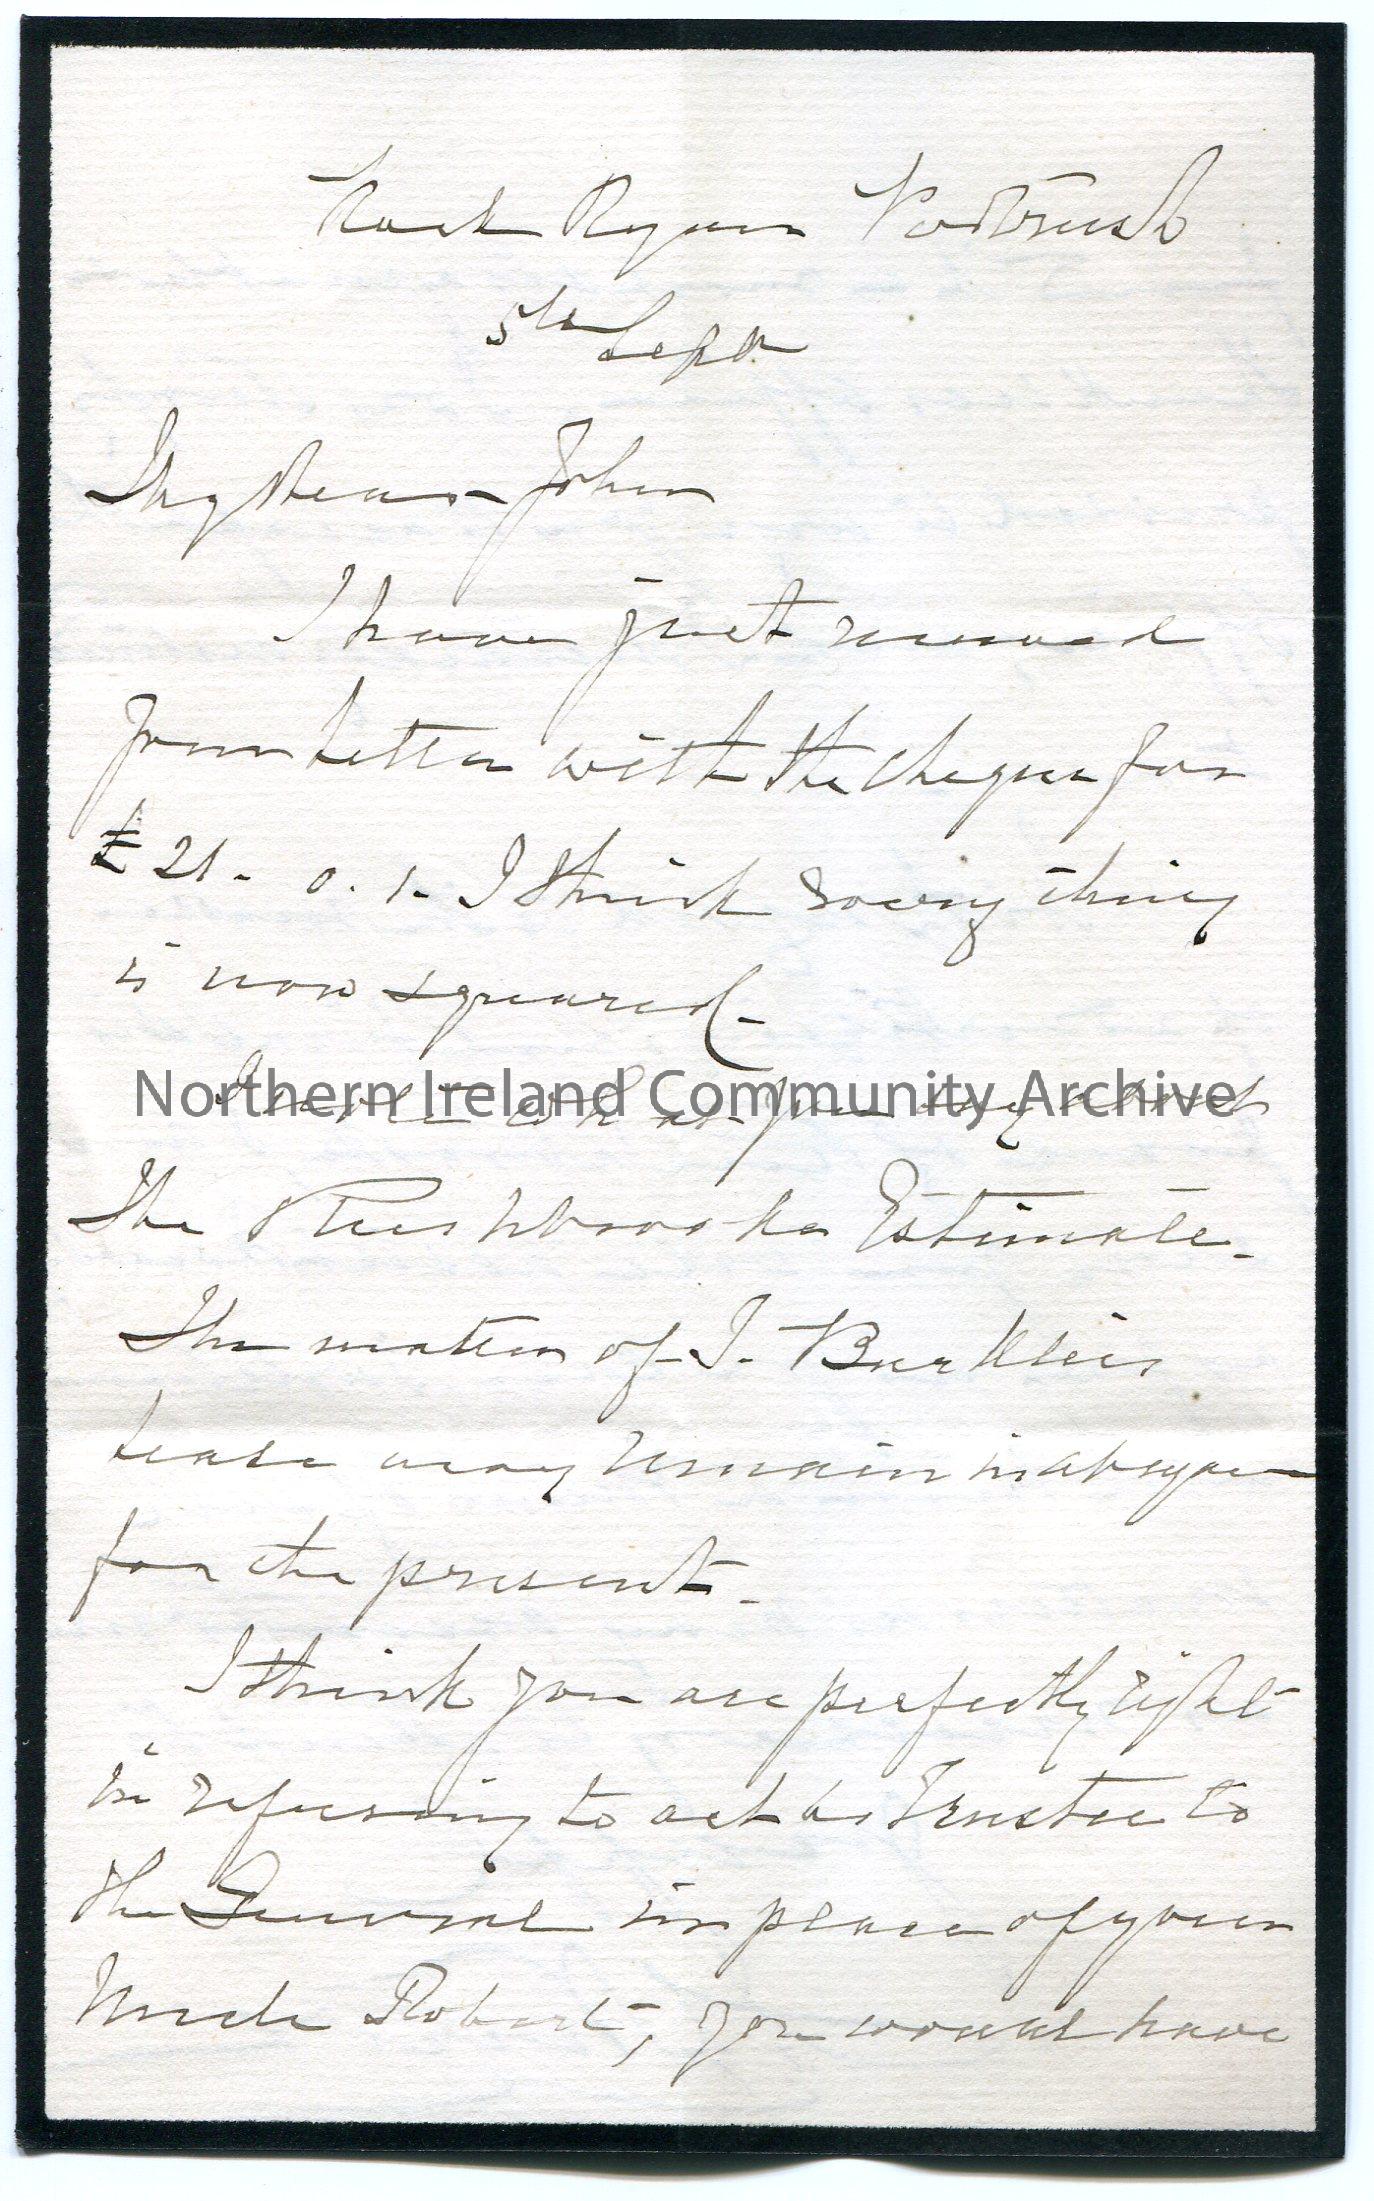 Rock Ryan Portrush
5th Sept
My dear John
I have just received
your letter with the cheque for
£21. 0. 1. I think everything
is now squared.
I note what you say about
Northern Ireland Community Archive
the Rushbrooke Estimate.
The matter of J. Barklie's
lease may remain in abeyance
for the present.
I think you are perfectly right
in refusing to act as Trustee to
the General in place of your
Uncle Robert, you would have